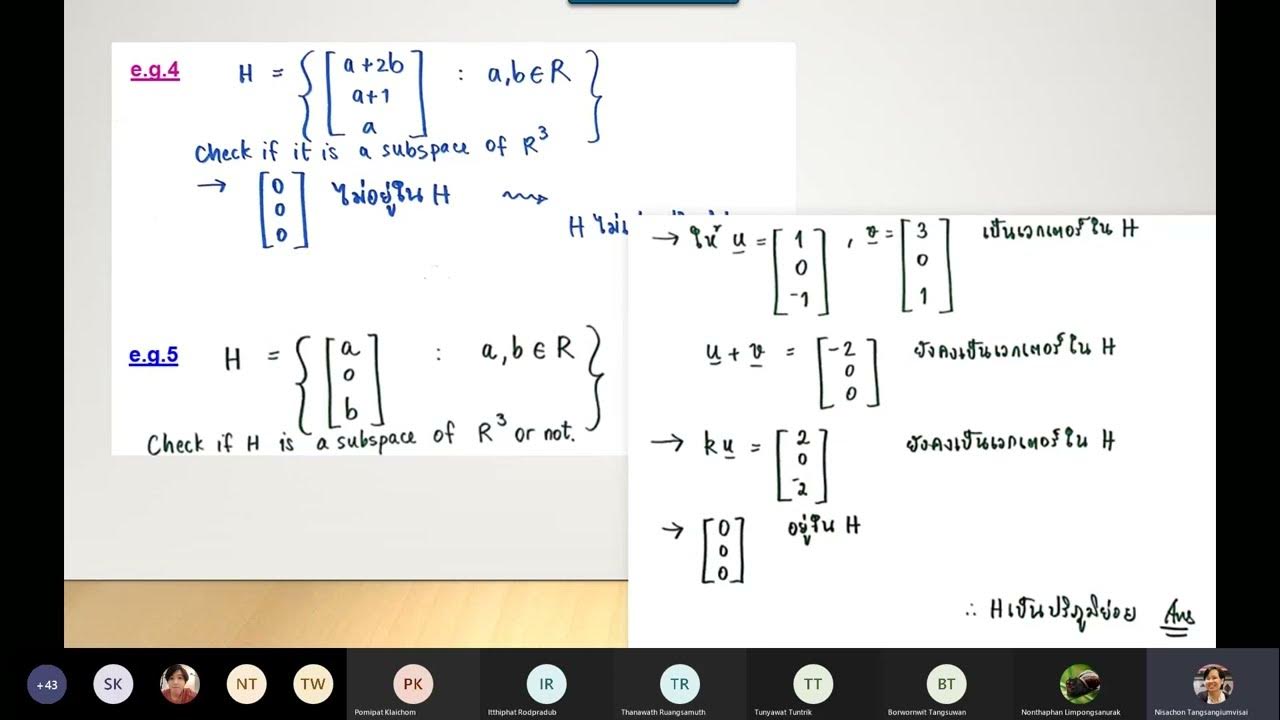 e.g.4 H = { [ a+2b a+1 a ] : a,b ∈ R }
Check if it is a subspace of R³
→ [ 0 0 0 ] ไม่อยู่ใน H
H
e.g.5 H = { [ a 0 b ] : a,b ∈ R }
Check if H is a subspace of R³ or not.
→ ให้ u = [ 1 0 -1 ] , v = [ 3 0 1 ] เป็นเวกเตอร์ใน H
u + v = [ -2 0 0 ] ยังคงเป็นเวกเตอร์ใน H
→ ku = [ 2 0 -2 ] ยังคงเป็นเวกเตอร์ใน H
→ [ 0 0 0 ] อยู่ใน H
∴ H เป็นปริภูมิย่อย Ans
+43 SK NT TW PK IR TR TT BT
Pomipat Klaichom Itthiphat Rodpradub Thanawath Ruangsamuth Tunyawat Tuntrik Borwornwit Tangsuwan Nonthaphan Limpongsanurak Nisachon Tangsangiumvisai